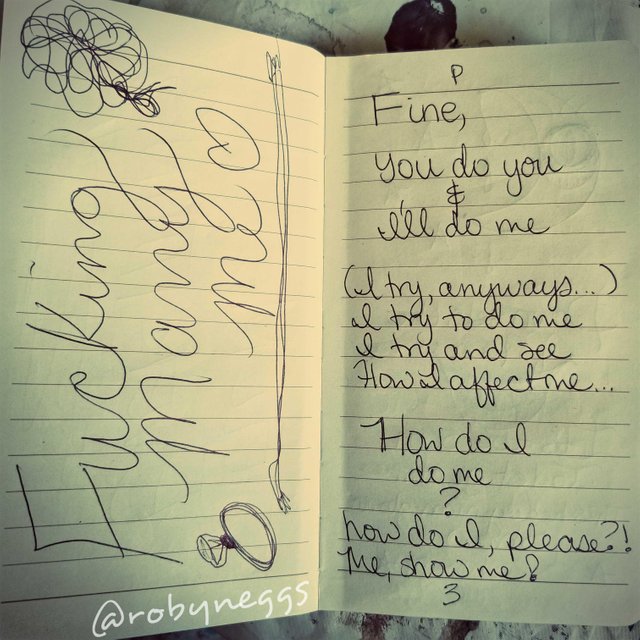 Fucking
Marry
me
P
Fine,
you do you
&
I'll do me
(I try, anyways...)
I try to do me
I try and see
How I affect me...
How do I
do me
?
how do I, please?!
Me, show me?
3
@robyneggs